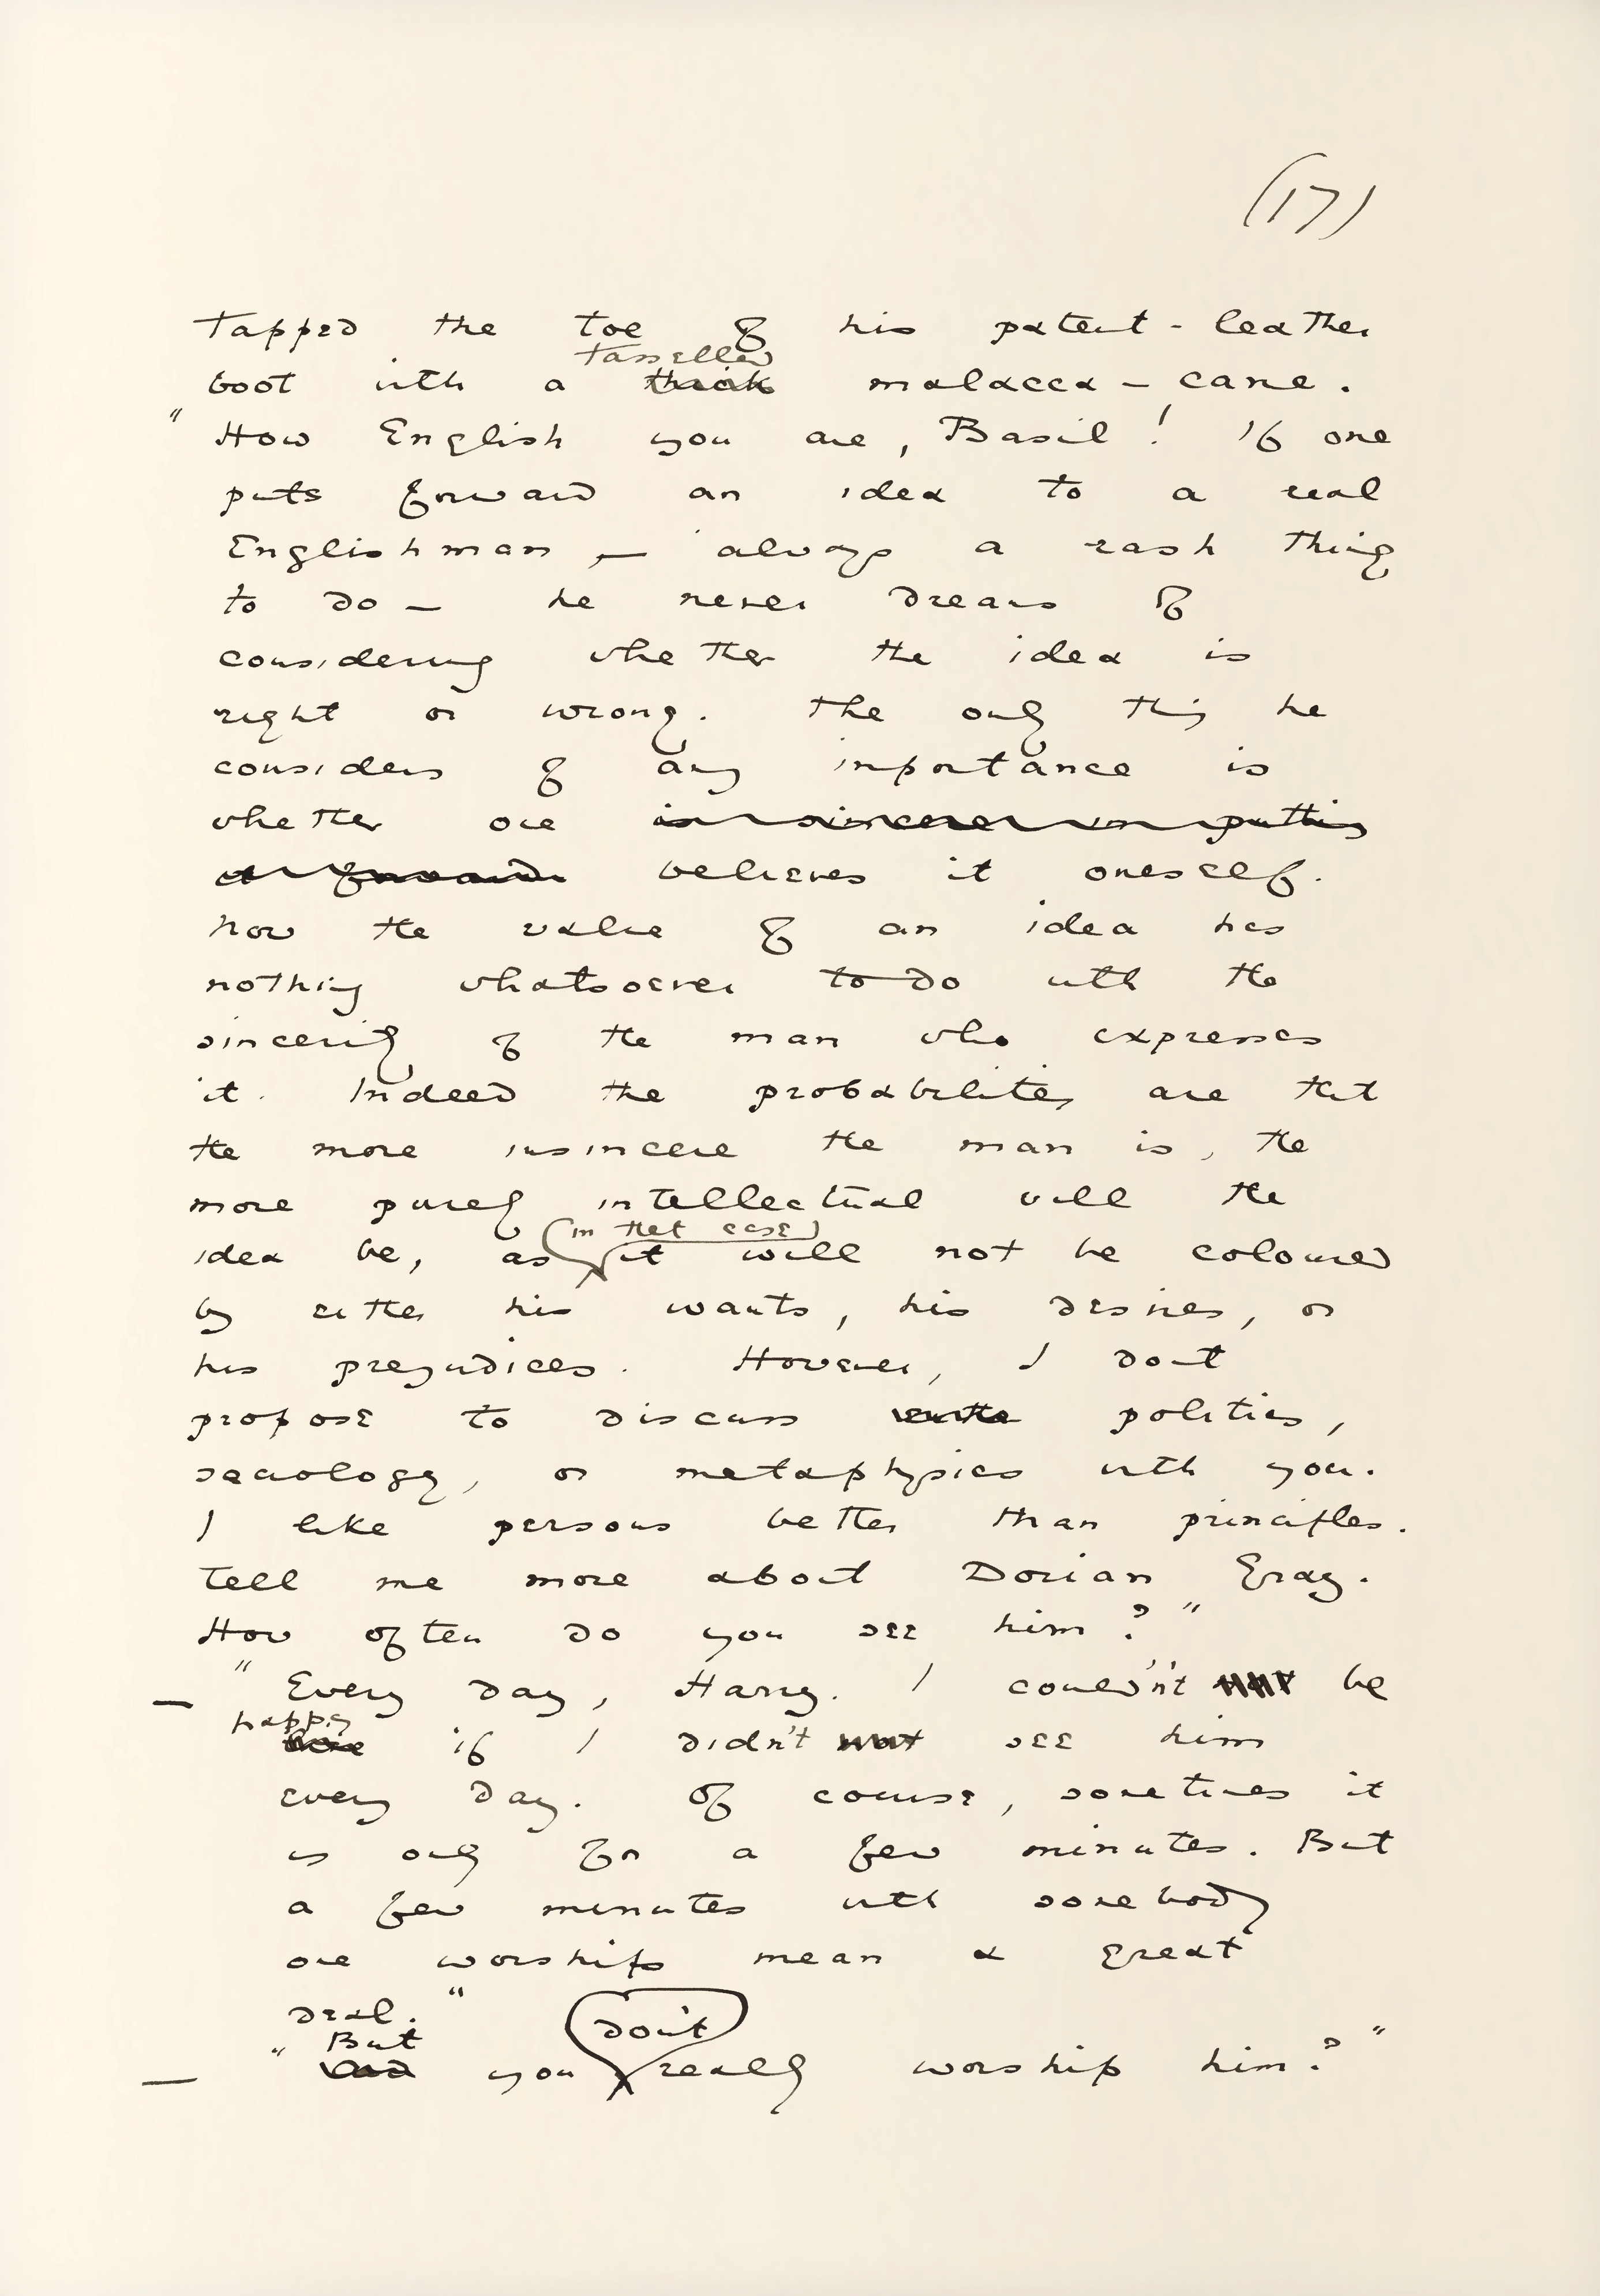 (17)
tapped the toe of his patent-leather
tasselled
boot with a thick malacca-cane.
"How English you are, Basil! If one
puts forward an idea to a real
Englishman — always a rash thing
to do — he never dreams of
considering whether the idea is
right or wrong. The only thing he
considers of any importance is
whether one is sincere in putting
it forward believes it oneself.
Now the value of an idea has
nothing whatsoever to do with the
sincerity of the man who expresses
it. Indeed the probabilities are that
the more insincere the man is, the
more purely intellectual will the
(in that case)
idea be, as it will not be coloured
by either his wants, his desires, or
his prejudices. However, I don't
propose to discuss politics,
sociology, or metaphysics with you.
I like persons better than principles.
Tell me more about Dorian Gray.
How often do you see him?"
— "Every day, Harry. I couldn't not be
happy
if I didn't not see him
every day. Of course, sometimes it
is only for a few minutes. But
a few minutes with somebody
one worships mean a great
deal."
But don't
— "And you really worship him?"